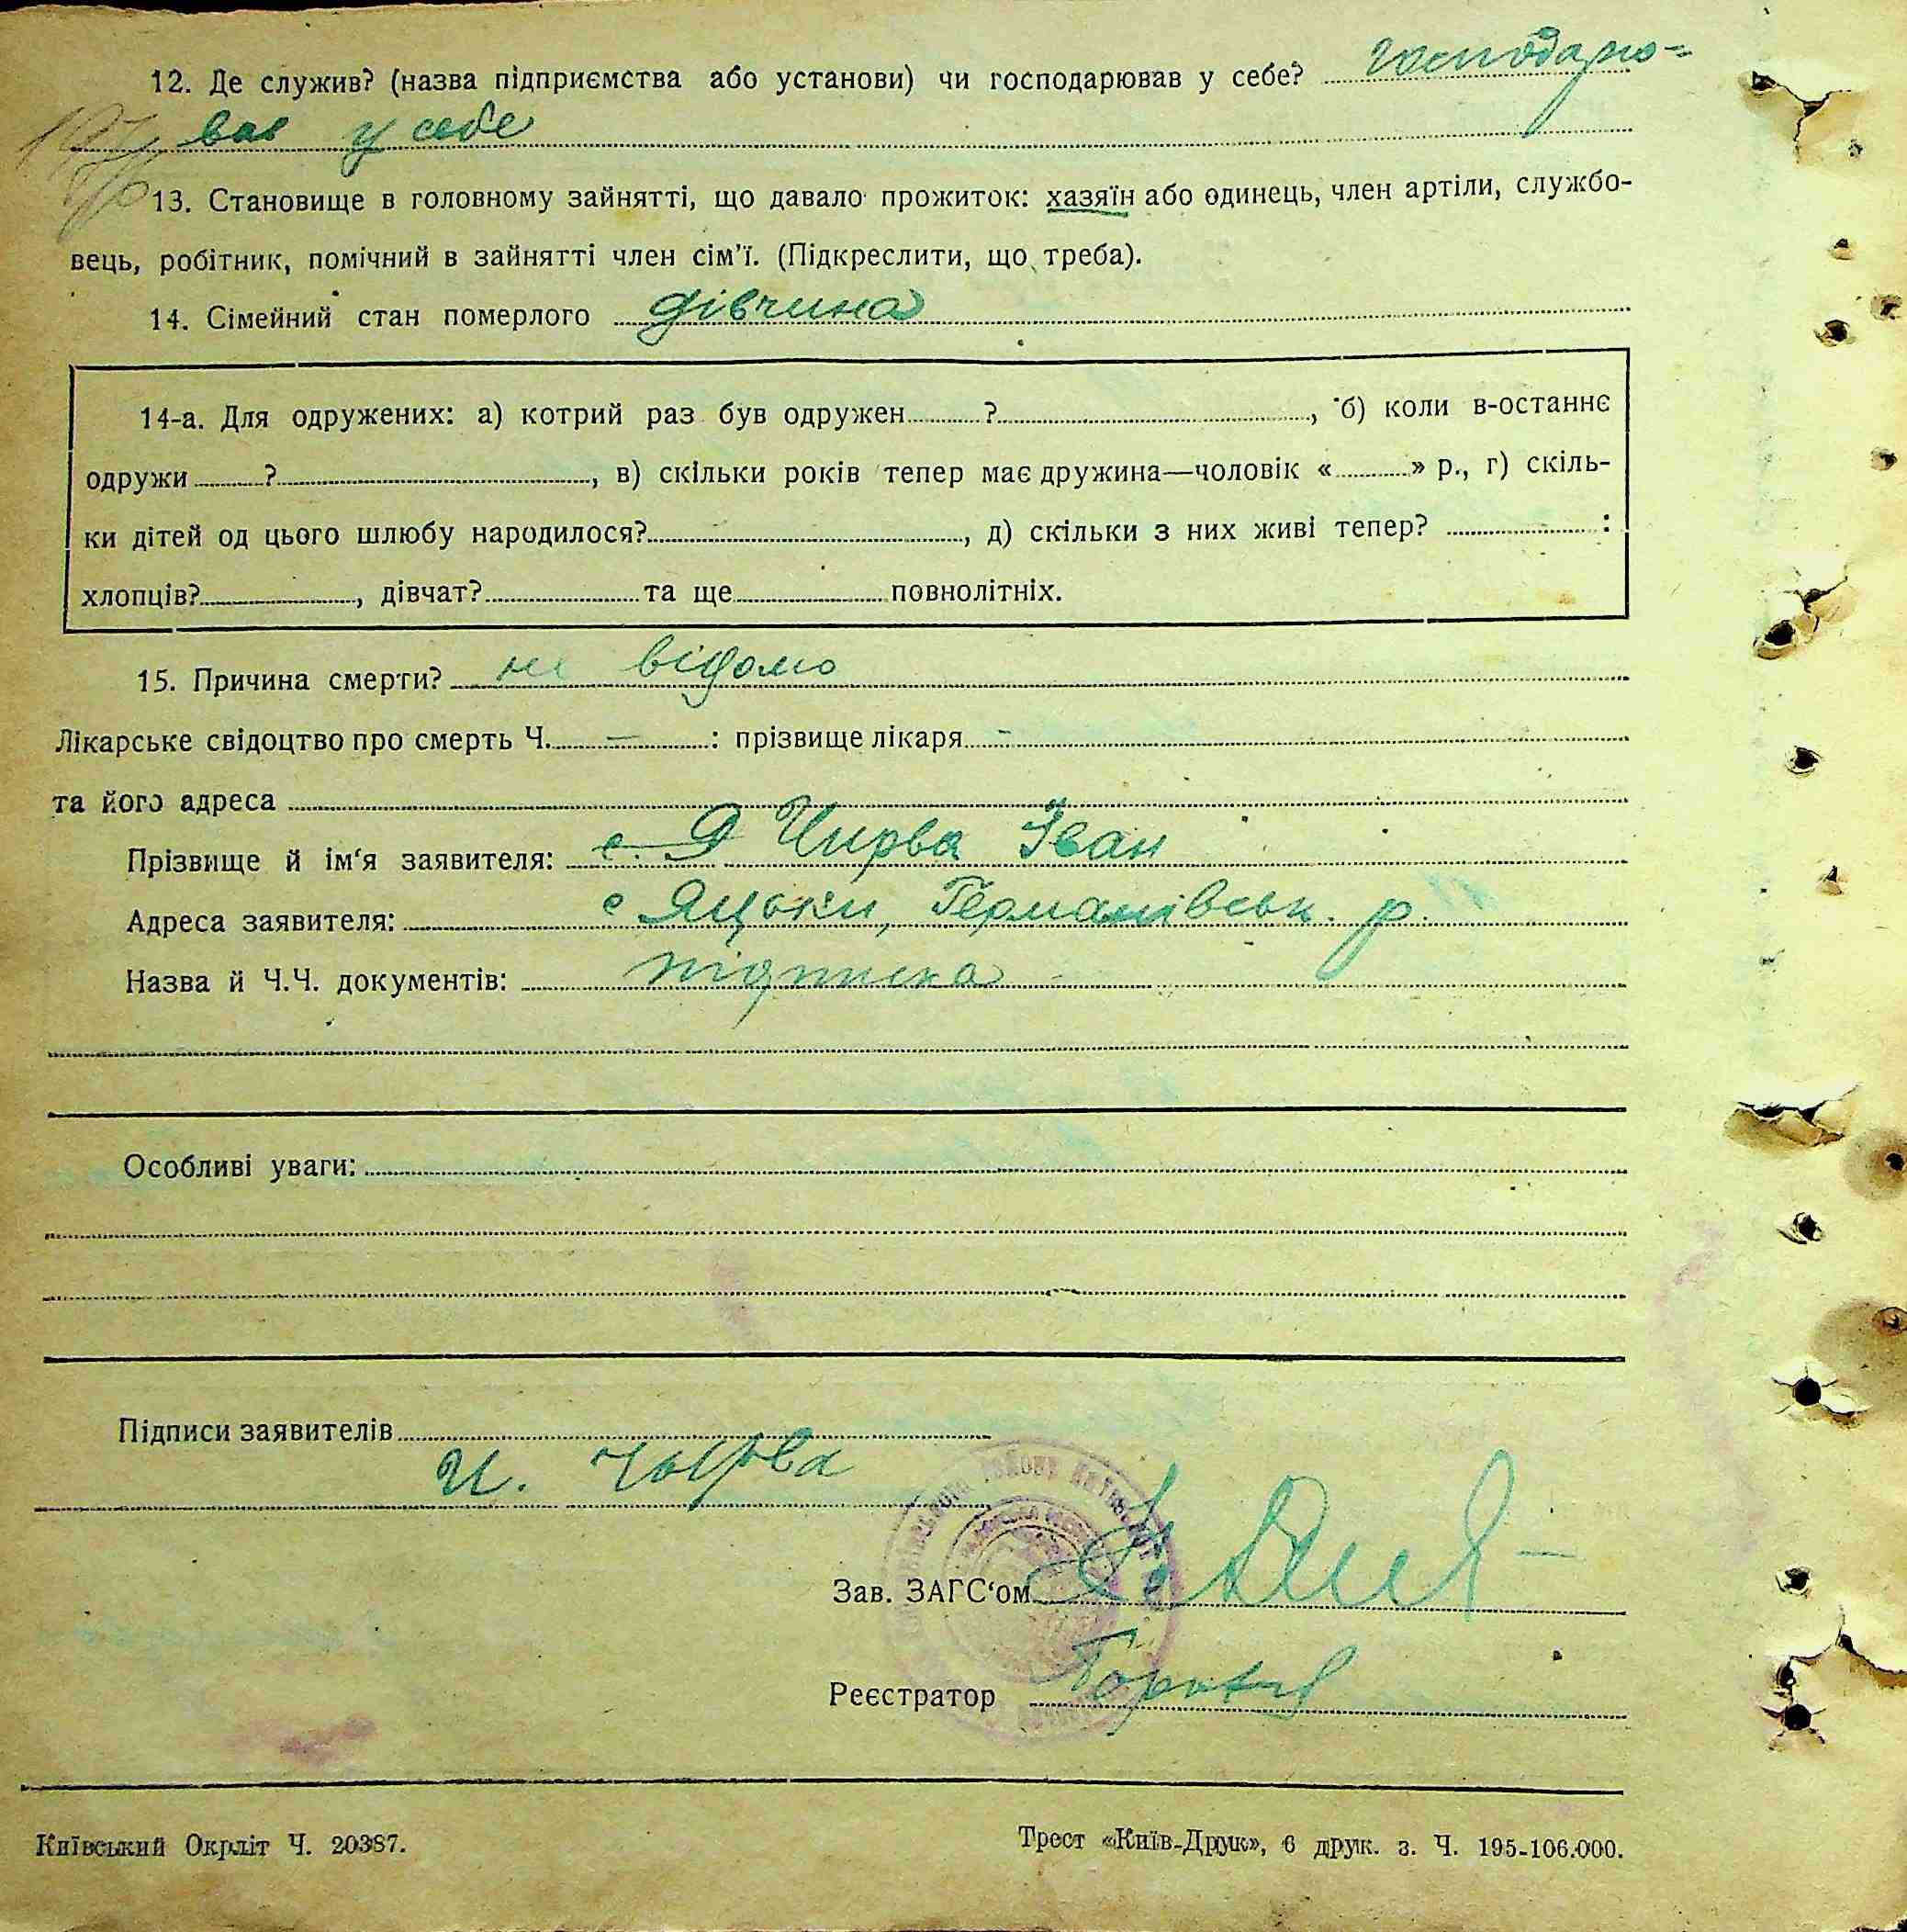 12. Де служив? (назва підприємства або установи) чи господарював у себе? господарю=
вав у себе
13. Становище в головному зайнятті, що давало прожиток: хазяїн або одинець, член артіли, службо-
вець, робітник, помічний в зайнятті член сім’ї. (Підкреслити, що треба).
14. Сімейний стан померлого дівчина
14-а. Для одружених: а) котрий раз був одружен ? , б) коли в-останнє
одружи ? , в) скільки років тепер має дружина—чоловік « » р., г) скіль-
ки дітей од цього шлюбу народилося? , д) скільки з них живі тепер? :
хлопців? , дівчат? та ще повнолітніх.
15. Причина смерти? не відомо
Лікарське свідоцтво про смерть Ч. — : прізвище лікаря -
та його адреса
Прізвище й ім‘я заявителя: с. Я Чирва Іван
Адреса заявителя: с Яцьки, Германівськ. р.
Назва й Ч.Ч. документів: підписка
Особливі уваги:
Підписи заявителів
И. Чырва
Зав. ЗАГС‘ом
Реєстратор
Київський Окрліт Ч. 20387.
Трест «Київ-Друк», 6 друк. з. Ч. 195-106.000.